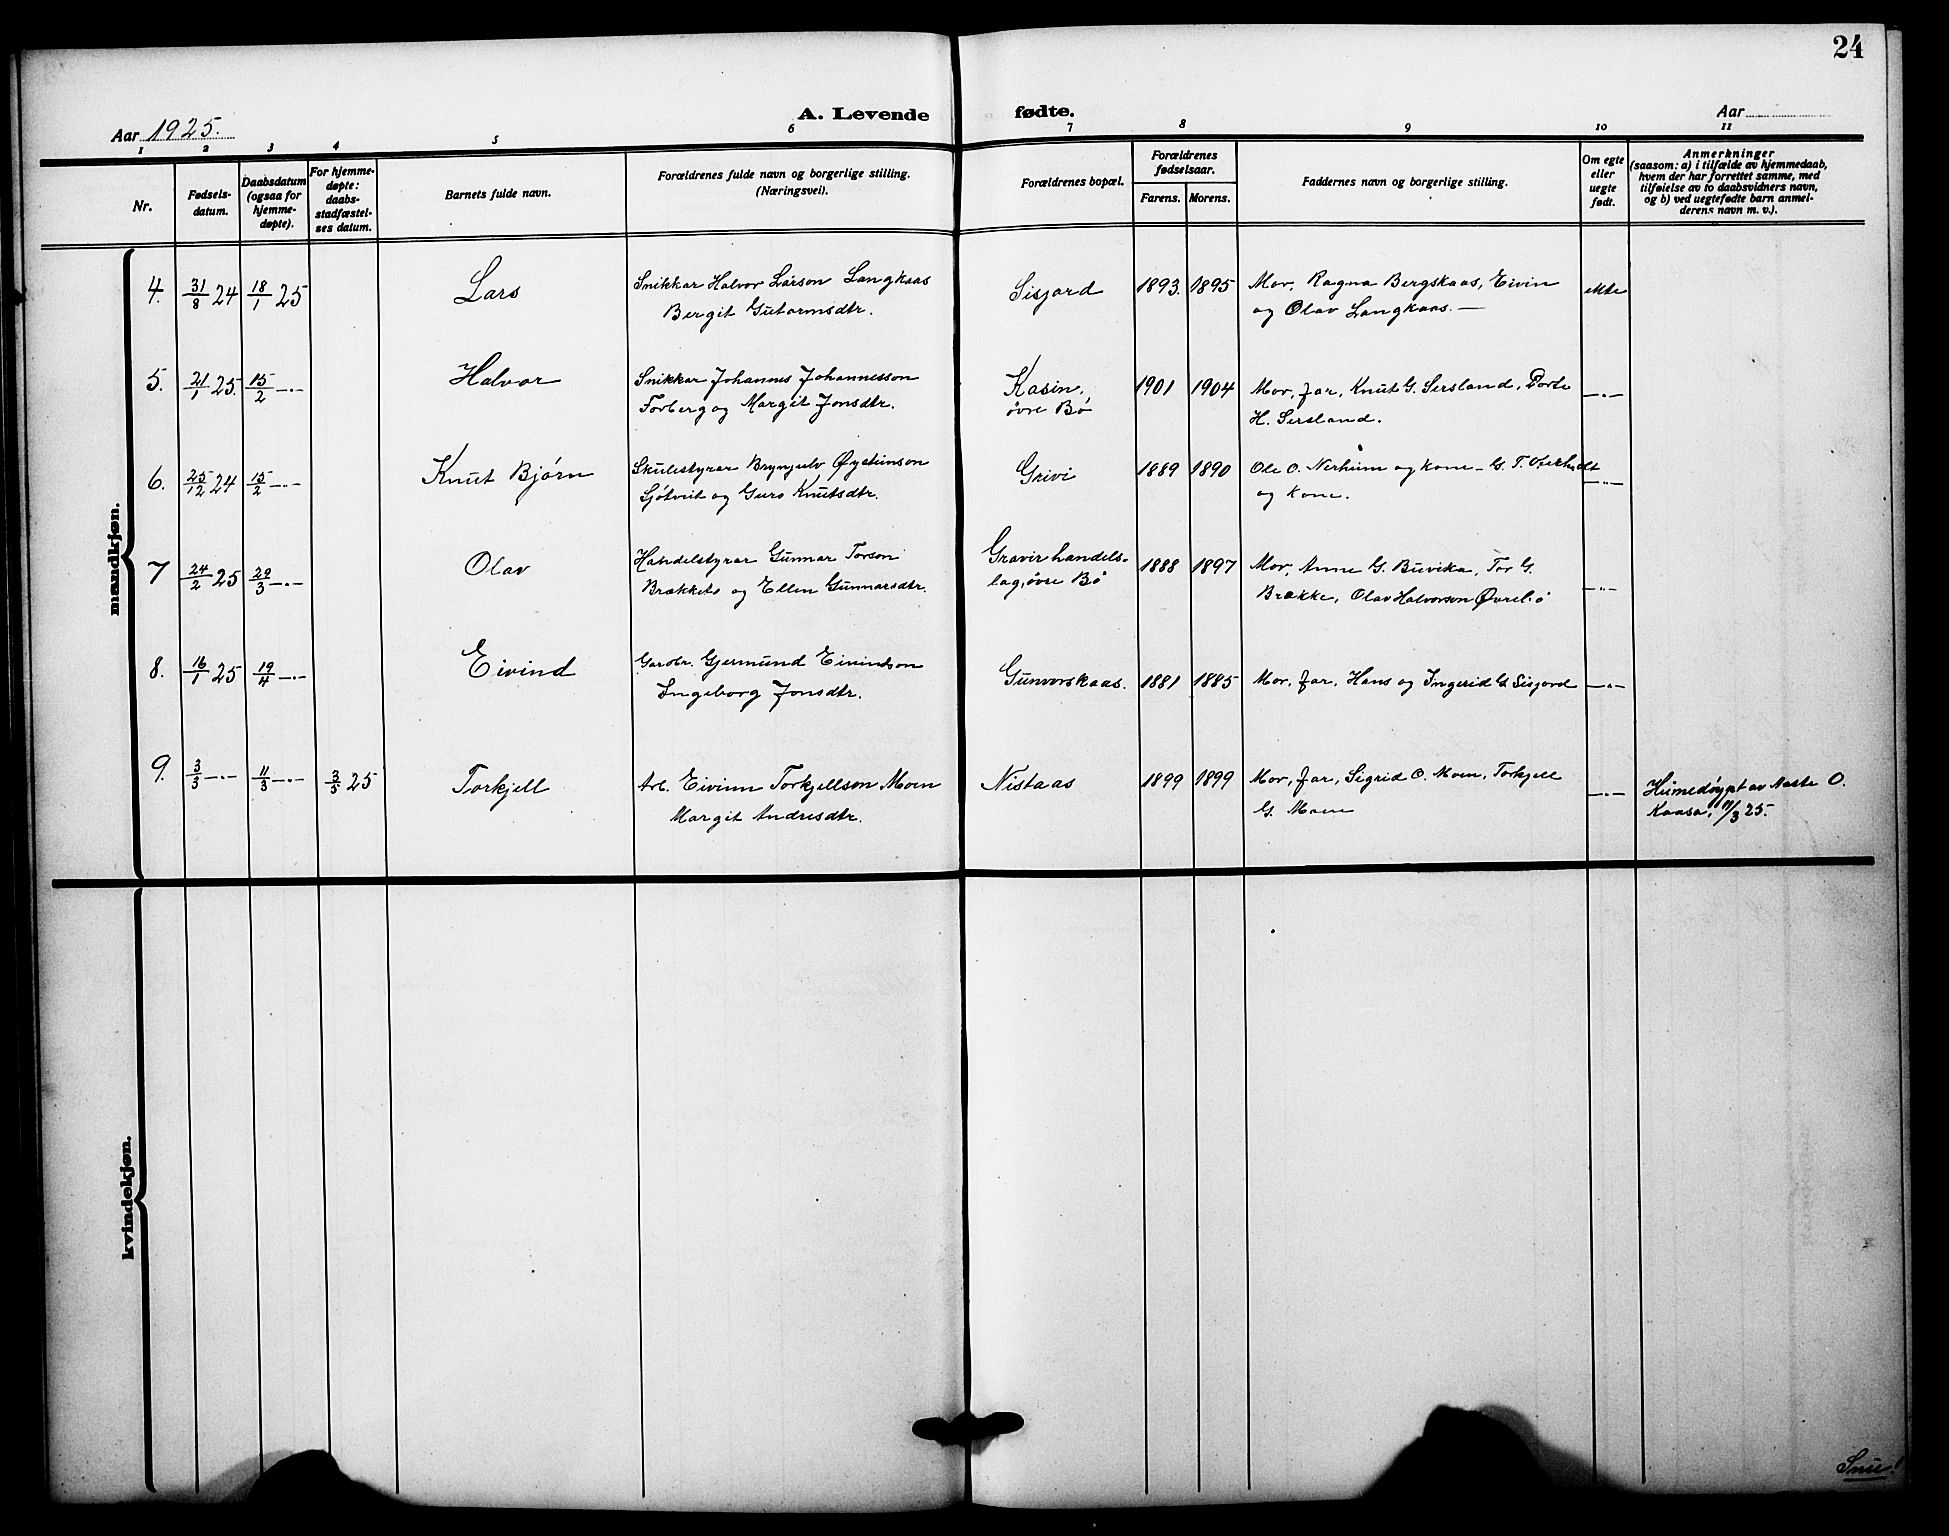 24
Aar 1925.
A. Levende fødte.
Aar
1 2 3 4 5 6 7 8 9 10 11
Nr.
Fødsels-
datum.
Daabsdatum
(ogsaa for
hjemme-
døpte).
For hjemme-
døpte:
daabs-
stadfæstel-
ses datum.
Barnets fulde navn.
Forældrenes fulde navn og borgerlige stilling.
(Næringsvei).
Forældrenes bopæl.
Forældrenes
fødselsaar.
Farens. Morens.
Faddernes navn og borgerlige stilling.
Om egte
eller
uegte
født.
Anmerkninger
(saasom: a) i tilfælde av hjemmedaab,
hvem der har forrettet samme, med
tilføielse av to daabsvidners navn,
og b) ved uegtefødte barn anmel-
derens navn m. v.).
mandkjøn.
4. 31/8 24 18/1 25 Lars Snikkar Halvor Larson Langkaas Sisjord 1893. 1895 Mor, Ragna Bergskaas, Eivin ekte
Bergit Gutormsdtr. og Olav Langkaas. —
5. 21/1 25. 15/2 —.— Halvor Snikkar Johannes Johannesson Kasin, 1901 1904 Mor, far, Knut G. Sersland, Dorte —.—
Forberg og Margit Jonsdtr. øvre Bø H. Sersland.
6. 25/12 24 15/2 —.— Knut Bjørn Skulestyrar Brynjulv Øysteinson Grivi 1889 1890 Ole O. Nerheim og kone - G. T. —.—
Sjøtveit og Guro Knutsdtr. og kone.
7 24/2 25 29/3 —.— Olav Handelstyrar Gunnar Torson Gravir handels- 1888 1897 Mor, Anne G. Buvika, Tor G. —.—
Brækketo og Ellen Gunnarsdtr. lag, øvre Bø Brække, Olav Halvorson Øvrebø
8. 16/1 25 19/4 —.— Eivind Gardbr. Gjermund Eivindson Gunvorskaas. 1881 1885 Mor, far, Hans og Ingerid G. Sisjord —.—
Ingeborg Jonsdtr.
9. 3/3 —.— 11/3 —.— 3/5 25 Torkjell Arb. Eivinn Torkjellson Moen Nistaas 1899 1899 Mor, far, Sigrid O. Moen, Torkjell —.— Heimedøypt av Aaste O.
Margit Andresdtr. G. Moen Kaasa, 11/3 25.
kvindekjøn.
Snu!